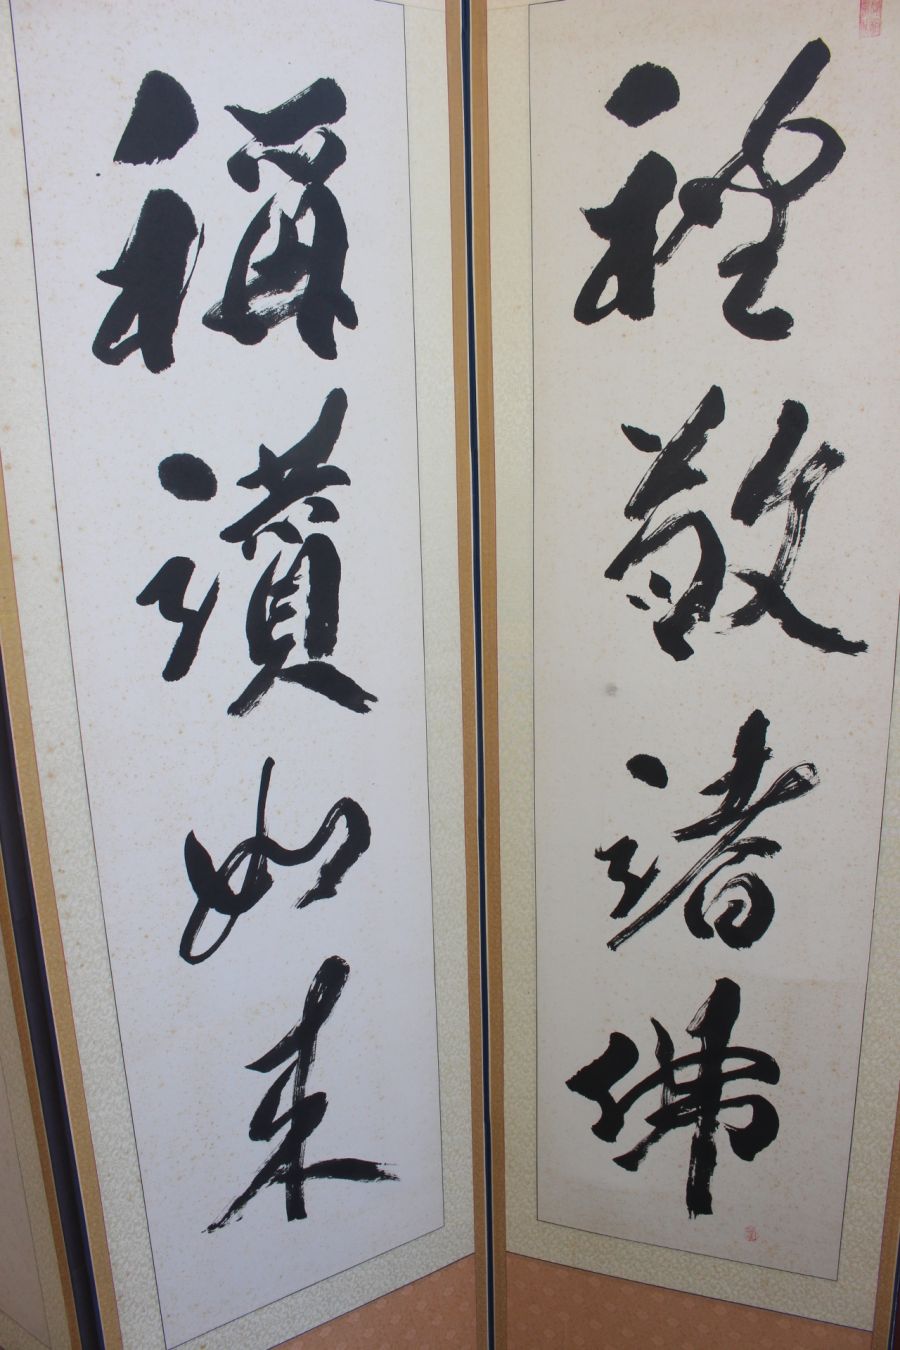 禮敬諸佛
稱讚如来